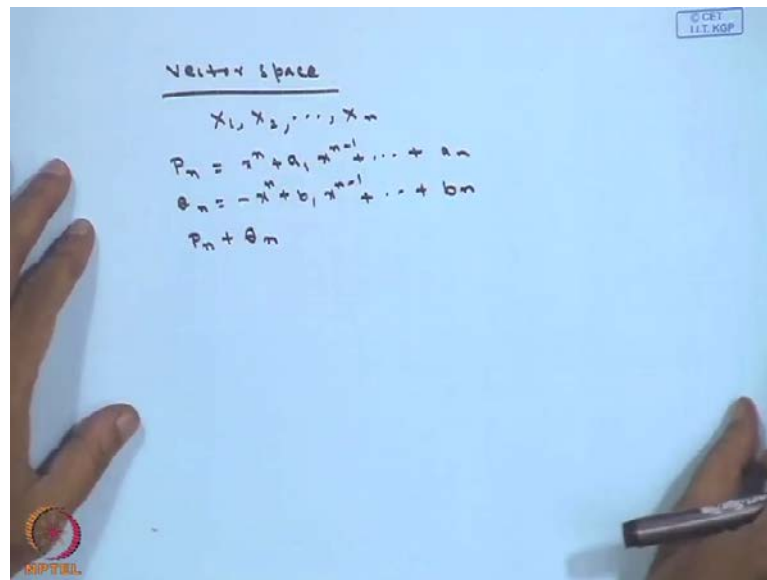 © CET
I.I.T. KGP
Vector space
x₁, x₂, ..., xₙ
Pₙ = xⁿ + a₁ xⁿ⁻¹ + ... + aₙ
Qₙ = -xⁿ + b₁ xⁿ⁻¹ + ... + bₙ
Pₙ + Qₙ
NPTEL